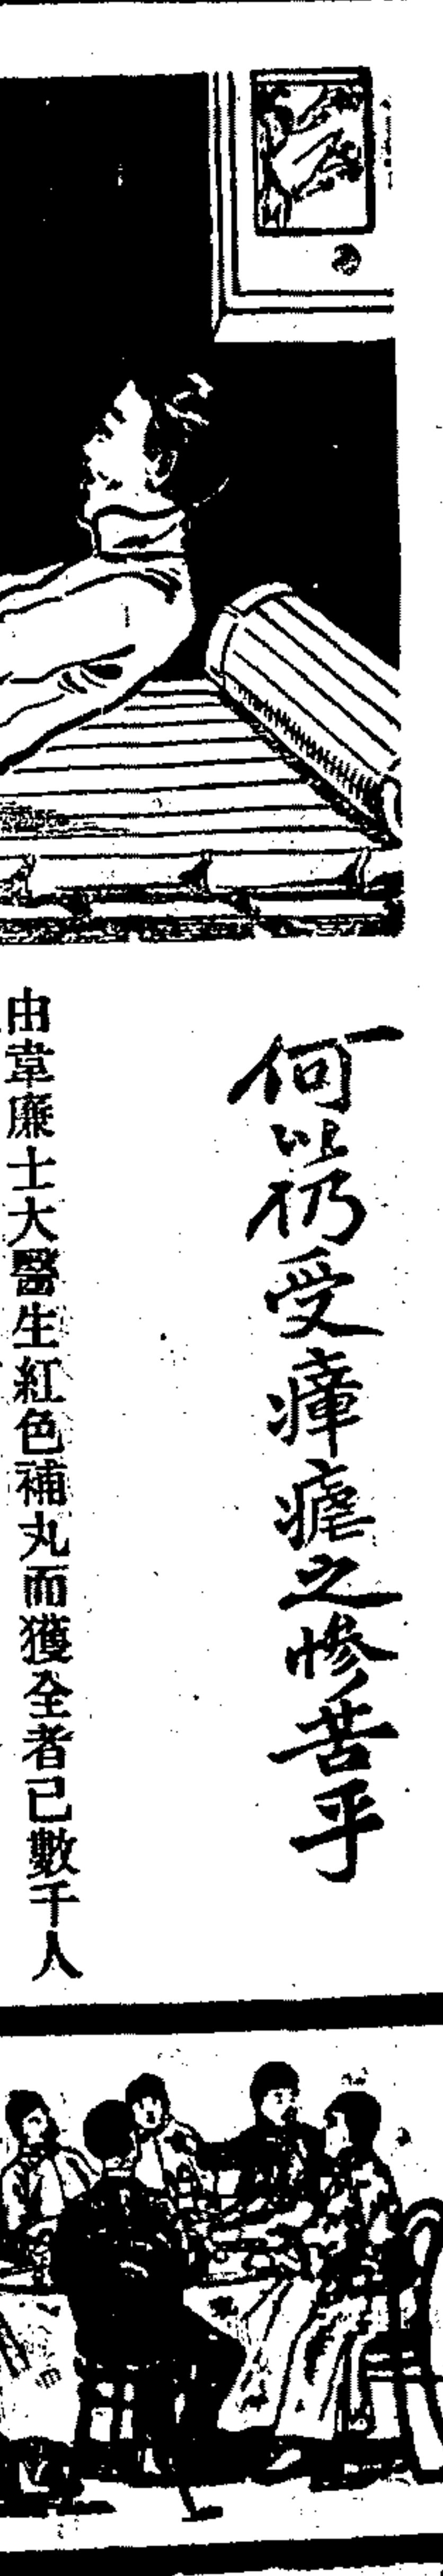 何以仍受瘴瘧之慘苦乎
由韋廉士大醫生紅色補丸而獲全者已數千人